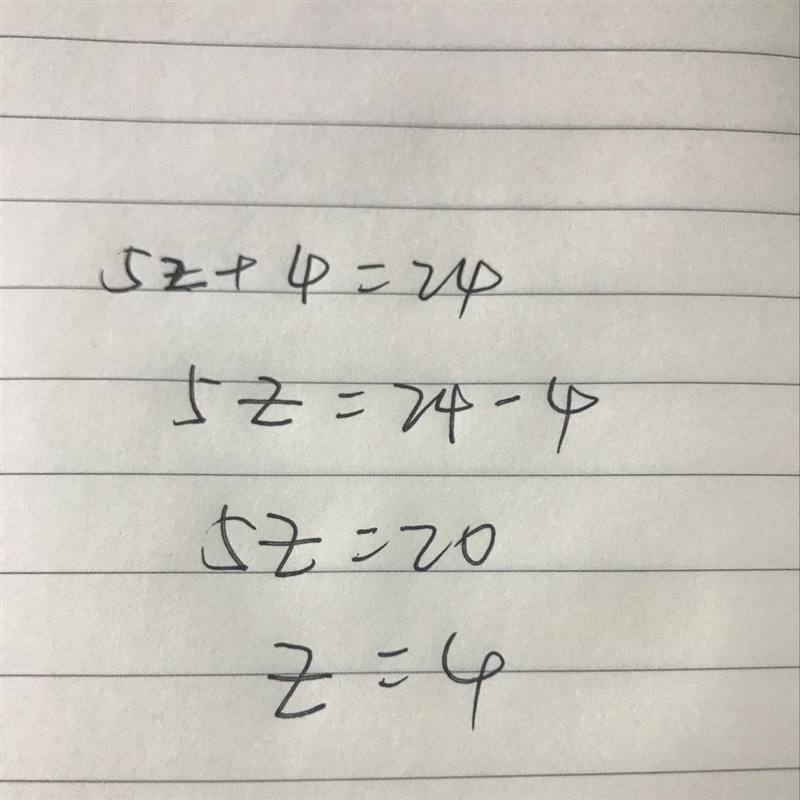 5z+4=24
5z=24-4
5z=20
z=4